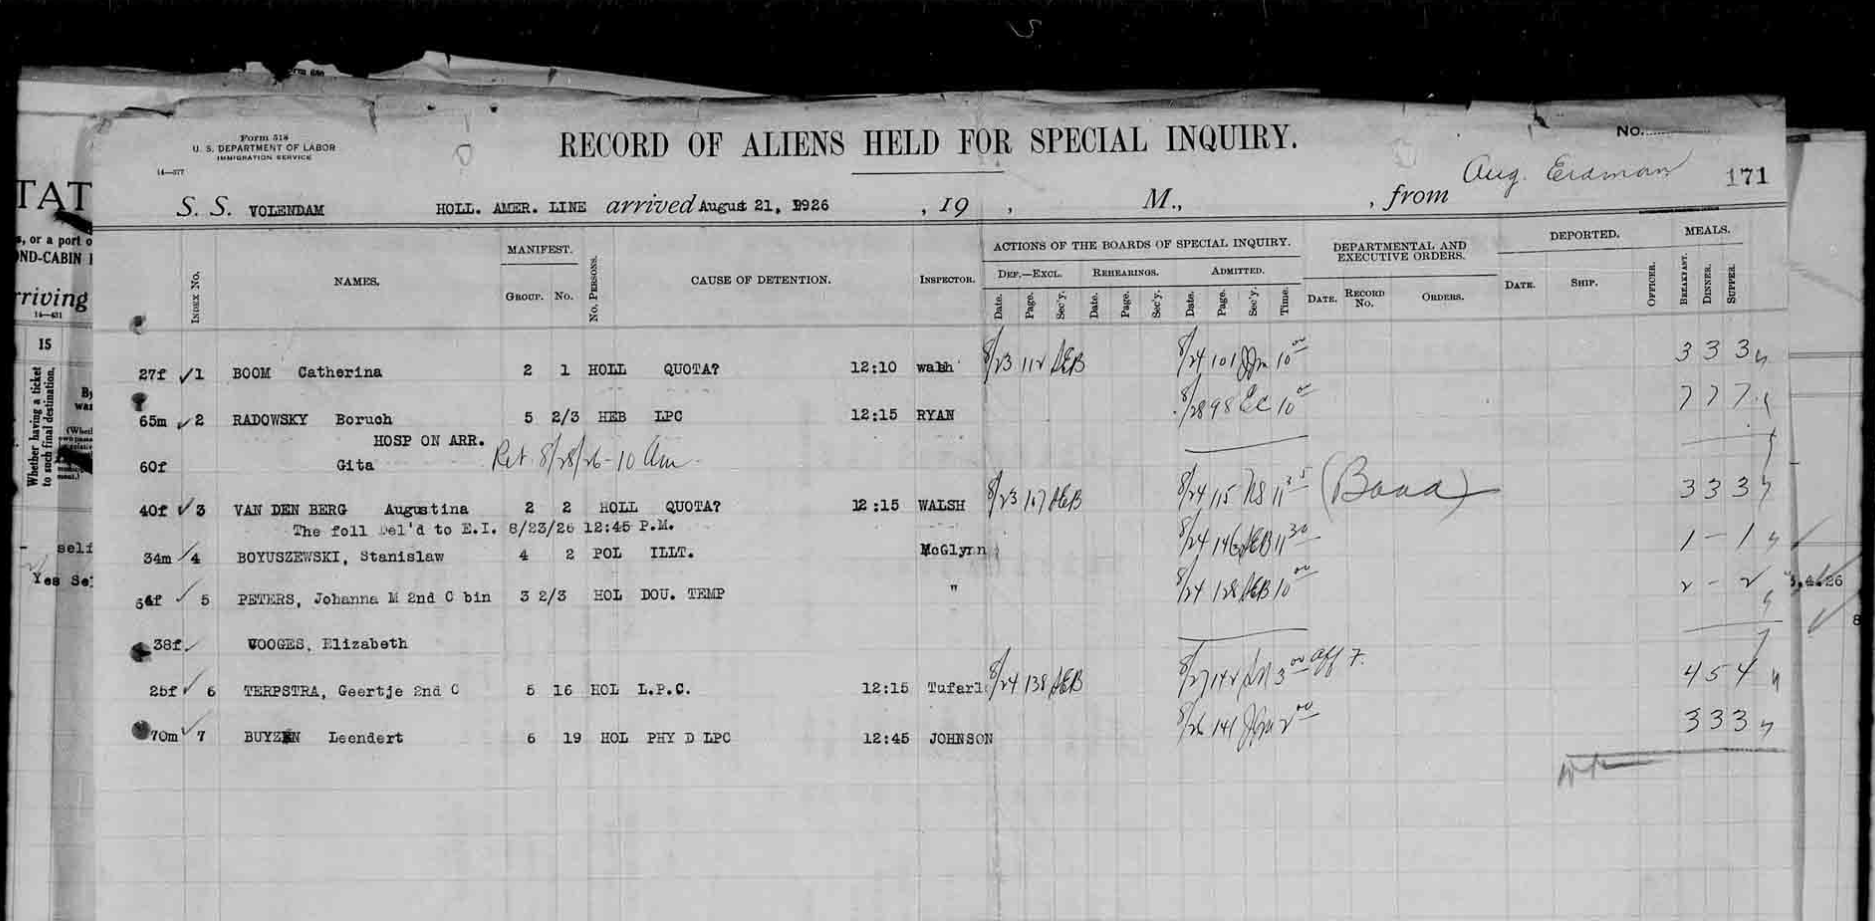 Form 518
U. S. DEPARTMENT OF LABOR
IMMIGRATION SERVICE
14—377
RECORD OF ALIENS HELD FOR SPECIAL INQUIRY.
No.
Aug. Erdman 171
S. S. VOLENDAM HOLL. AMER. LINE arrived August 21, 1926 , 19 , M., , from
INDEX No. NAMES. MANIFEST. GROUP. No. No. PERSONS. CAUSE OF DETENTION. INSPECTOR.
ACTIONS OF THE BOARDS OF SPECIAL INQUIRY.
DEF.—EXCL. REHEARINGS. ADMITTED.
Date. Page. Sec'y. Date. Page. Sec'y. Date. Page. Sec'y. Time.
DEPARTMENTAL AND EXECUTIVE ORDERS.
DATE. RECORD No. ORDERS.
DEPORTED.
DATE. SHIP. OFFICER.
MEALS.
BREAKFAST. DINNER. SUPPER.
27f 1 BOOM Catherina 2 1 HOLL QUOTA? 12:10 walsh 8/23 112 AEB 8/24 101 10 00 3 3 3
65m 2 RADOWSKY Boruch 5 2/3 HEB LPC 12:15 RYAN 8/28 98 EC 10 00 7 7 7
HOSP ON ARR.
60f Gita Ret 8/28/26 - 10 Am
40f 3 VAN DEN BERG Augustina 2 2 HOLL QUOTA? 12:15 WALSH 8/23 107 AEB 8/24 115 11 35 (Baad) 3 3 3
The foll Del'd to E.I. 8/23/26 12:45 P.M.
34m 4 BOYUSZEWSKI, Stanislaw 4 2 POL ILLT. McGlynn 8/24 146 AEB 11 30 1 - 1
54f 5 PETERS, Johanna M 2nd C bin 3 2/3 HOL DOU. TEMP " 8/24 128 AEB 10 00 2 - 2
38f WOOGES, Elizabeth
25f 6 TERPSTRA, Geertje 2nd C 5 16 HOL L.P.C. 12:15 Tufarl 8/24 138 AEB 8/27 142 3 00 aff 7. 4 5 4
70m 7 BUYZEN Leendert 6 19 HOL PHY D LPC 12:45 JOHNSON 8/26 141 2 00 3 3 3
TAT
s, or a port o
ND-CABIN
rriving
14—431
15
Whether having a ticket to such final destination.
By
was
self
Yes Se